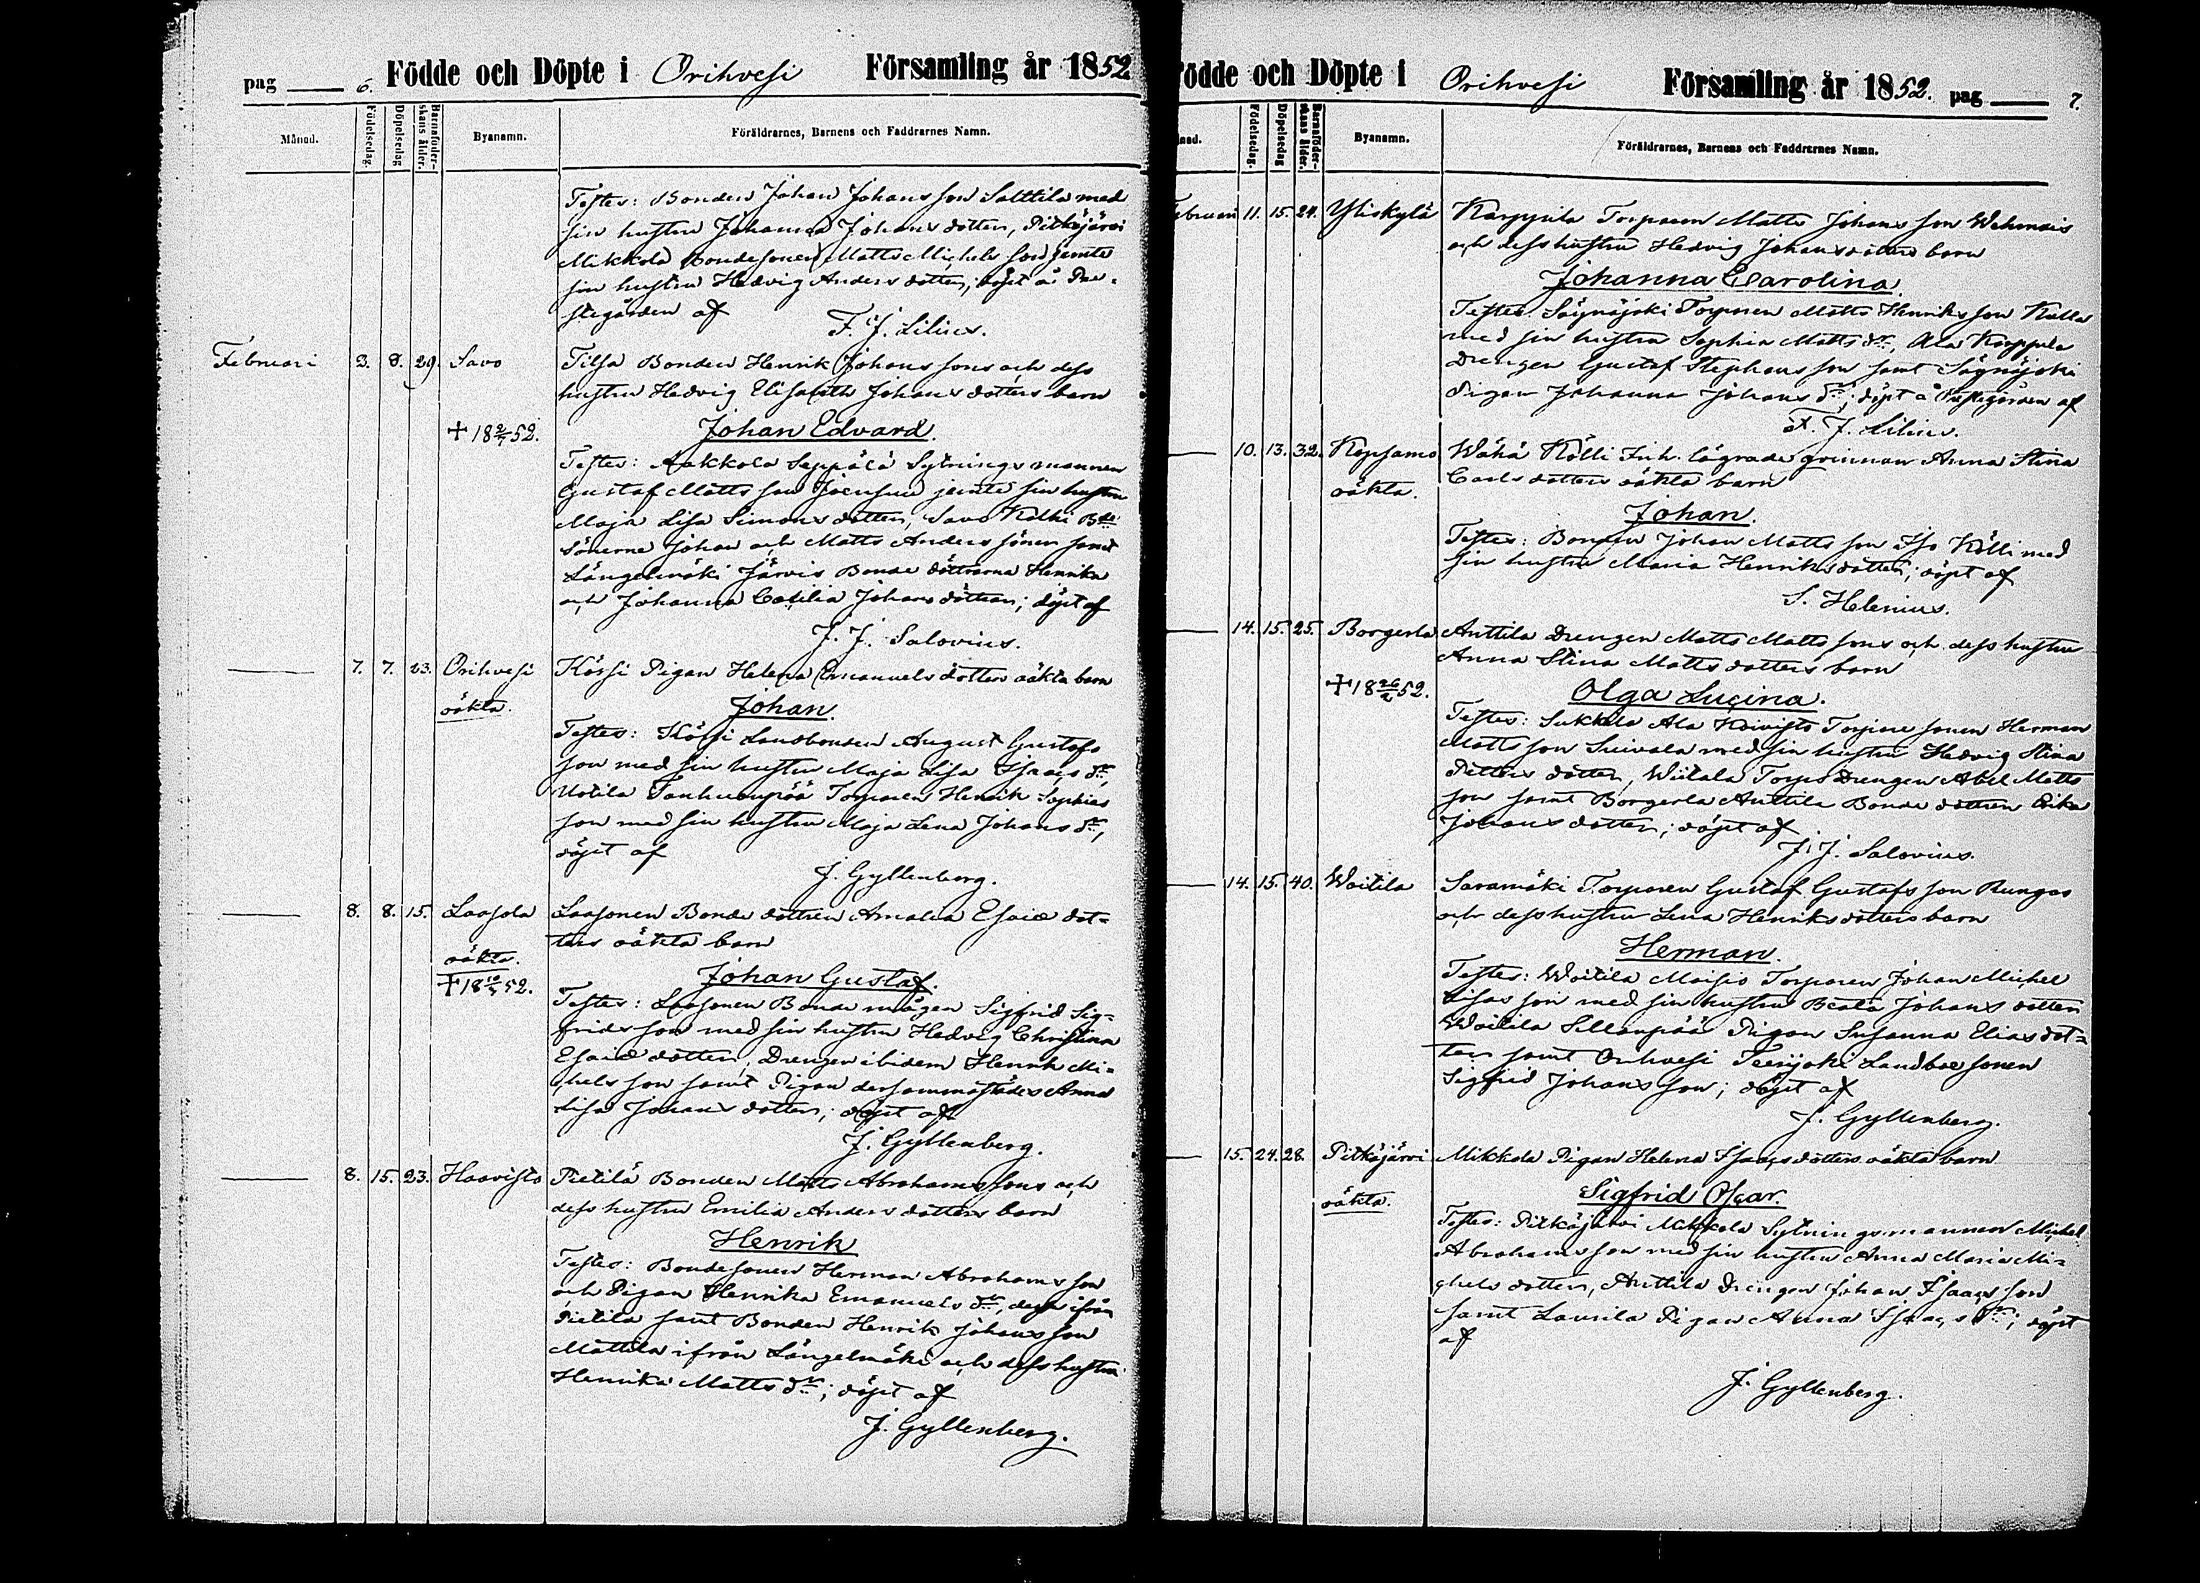 pag 6. Födde och Döpte i Orihvesi Församling år 1852
Månad. Födelsedag. Döpelsedag Barnaföder-skans ålder. Byanamn. Föräldrarnes, Barnens och Faddrarnes Namn.
Testes: Bonden Johan Johans son Sattila med
sin hustru Johanna Johans dotter, Pitkäjärvi
Mikkola Bondesonen Matts Michels son jemte
sin hustru Hedvig Anders dotter; döpt å Pre-
stegården af
F. J. Lilius.
Februari 3. 8. 29. Savo Tilsa Bonden Henrik Johans sons och dess
hustru Hedvig Elisabeth Johans dotters barn
+ 18 52. Johan Edvard.
Testes: Aakkola Seppälä Sytningsmannen
Gustaf Matts son Joensuu jemte sin hustru
Maja Lisa Simons dotter, Savo Kölhi Bde
Sönerne Johan och Matts Anders söner samt
Längelmäki Järvis Bonde döttrarna Henrika
och Johanna Cecilia Johans döttrar; döpt af
J. J. Salovius.
7. 7. 23. Orihvesi Kössi Pigan Helena Emanuels dotters oäkta barn
oäkta. Johan.
Testes: Kössi Landbonden August Gustafs
son med sin hustru Maja Lisa Isaacs dr,
Uotila Tanhuanpää Torparen Henrik Sophias
son med sin hustru Maja Lena Johans dr,
döpt af
J. Gyllenberg.
8. 8. 15. Laasola Laasonen Bonde dottren Amalia Esaiæ dot-
ters oäkta barn
oäkta.
+ 18 52. Johan Gustaf.
Testes: Laasonen Bonde mågen Sigfrid Sig-
frids son med sin hustru Hedvig Christina
Esaiæ dotter, Drengen ibidem Henrik Mi-
chels son samt Pigan dersammastädes Anna
Lisa Johans dotter; döpt af
J. Gyllenberg.
8. 15. 23. Haavisto Pietilä Bonden Matts Abrahams sons och
dess hustru Emilia Anders dotters barn
Henrik
Testes: Bondesonen Herman Abrahams son
och Pigan Henrika Emanuels dr, ifrån
Pietila samt Bonden Henrik Johans son
Mattila ifrån Längelmäki och dess hustru
Henrika Matts dr; döpt af
J. Gyllenberg.
Födde och Döpte i Orihvesi Församling år 1852. pag 7.
Födelsedag. Döpelsedag Barnaföder-skans ålder. Byanamn. Föräldrarnes, Barnens och Faddrarnes Namn.
Februari 11. 15. 24. Yliskylä Torparen Matts Johans son
och dess hustru Hedvig Johans dotters barn
Johanna Carolina.
Testes: Sägnäjoki Torparen Matts Henriks son
med sin hustru Sophia Matts dr, Ala
Drengen Gustaf Stephans son samt Sägnäjoki
Pigan Johanna Johans dr; döpt å Prestegården af
F. J. Lilius.
10. 13. 32. Kopsamo Wähä Kölli Inh. lägrade qvinnan Anna Stina
oäkta. Carls dotters oäkta barn
Johan.
Testes: Bonden Johan Matts son Iso Kölli med
sin hustru Maria Henriks dotter; döpt af
S. Helenius.
14. 15. 25. Borgerla Anttila Drengen Matts Matts sons och dess hustru
Anna Stina Matts dotters barn
+ 18 26/2 52. Olga Lucina.
Testes: Sukkila Ala Koivisto Torpare sonen Herman
Matts son med sin hustru Hedvig Stina
Petters dotter, Wiitala Torps Drengen Abel Matts
son samt Borgerla Anttila Bonde dottren Erika
Johans dotter; döpt af
J. J. Salovius.
14. 15. 40. Woitila Saramäki Torparen Gustaf Gustafs son Rungos
och dess hustru Lena Henriks dotters barn
Herman.
Testes: Woitila Maisio Torparen Johan Michel
Lisas son med sin hustru Beata Johans dotter
Woitila Sillanpää Pigan Susanna Elias dot-
ter samt Orihvesi Teerijoki Landboe sonen
Sigfrid Johans son; döpt af
J. Gyllenberg.
15. 24. 28. Pitkäjärvi Mikkola Pigan Helena Isaacs dotters oäkta barn
oäkta. Sigfrid Oscar.
Testes: Pitkäjärvi Mikkola Sytningsmannen Michel
Abrahams son med sin hustru Anna Maria Mi-
chels dotter, Anttila Drengen Johan Isaacs son
samt Laurila Pigan Anna Isaacs dr; döpt
af
J. Gyllenberg.